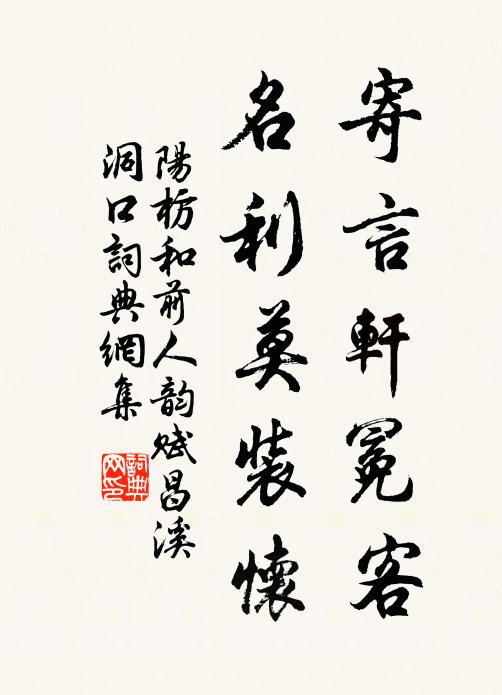 寄言軒冕客
名利莫裝懷
陽枋和前人韵賦昌溪
洞口詞典網集
詞典網印